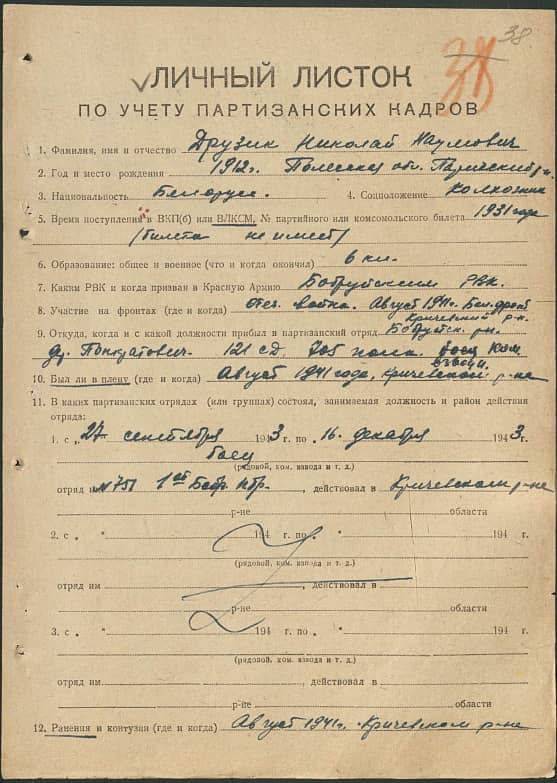 38
38
ЛИЧНЫЙ ЛИСТОК
ПО УЧЕТУ ПАРТИЗАНСКИХ КАДРОВ
1. Фамилия, имя и отчество Друзик Николай Наумович
2. Год и место рождения 1912г. Полесская обл. Паричский р-н
3. Национальность Белорус. 4. Соцположение колхозник
5. Время поступления в ВКП(б) или ВЛКСМ, № партийного или комсомольского билета 1931 года
(билета не имеет)
6. Образование: общее и военное (что и когда окончил) 6 кл.
7. Каким РВК и когда призван в Красную Армию Бобруйским РВК.
8. Участие на фронтах (где и когда) Отеч. война. Август 1941г. Бел. фронт
Кричевский р-н.
9. Откуда, когда и с какой должности прибыл в партизанский отряд Бобруйск. р-н.
д. 121 СД, 705 полк. боец ком.
10. Был ли в плену (где и когда) Август 1941 года, Кричевском р-не
11. В каких партизанских отрядах (или группах) состоял, занимаемая должность и район действия
отряда:
1. с „27 сентября 1943 г. по „16 декабря 1943 г.
боец
(рядовой, ком. взвода и т. д.)
отряд №751 1ой Бобр. п/бр., действовал в Кричевском р-не
р-не области
2. с „ " 194 г. по „ " 194 г.
(рядовой, ком. взвода и т. д.)
отряд им , действовал в
р-не области
3. с „ " 194 г. по „ " 194 г.
(рядовой, ком. взвода и т. д.)
отряд им. , действовал в
р-не области
12. Ранения и контузии (где и когда) Август 1941г. Кричевском р-не